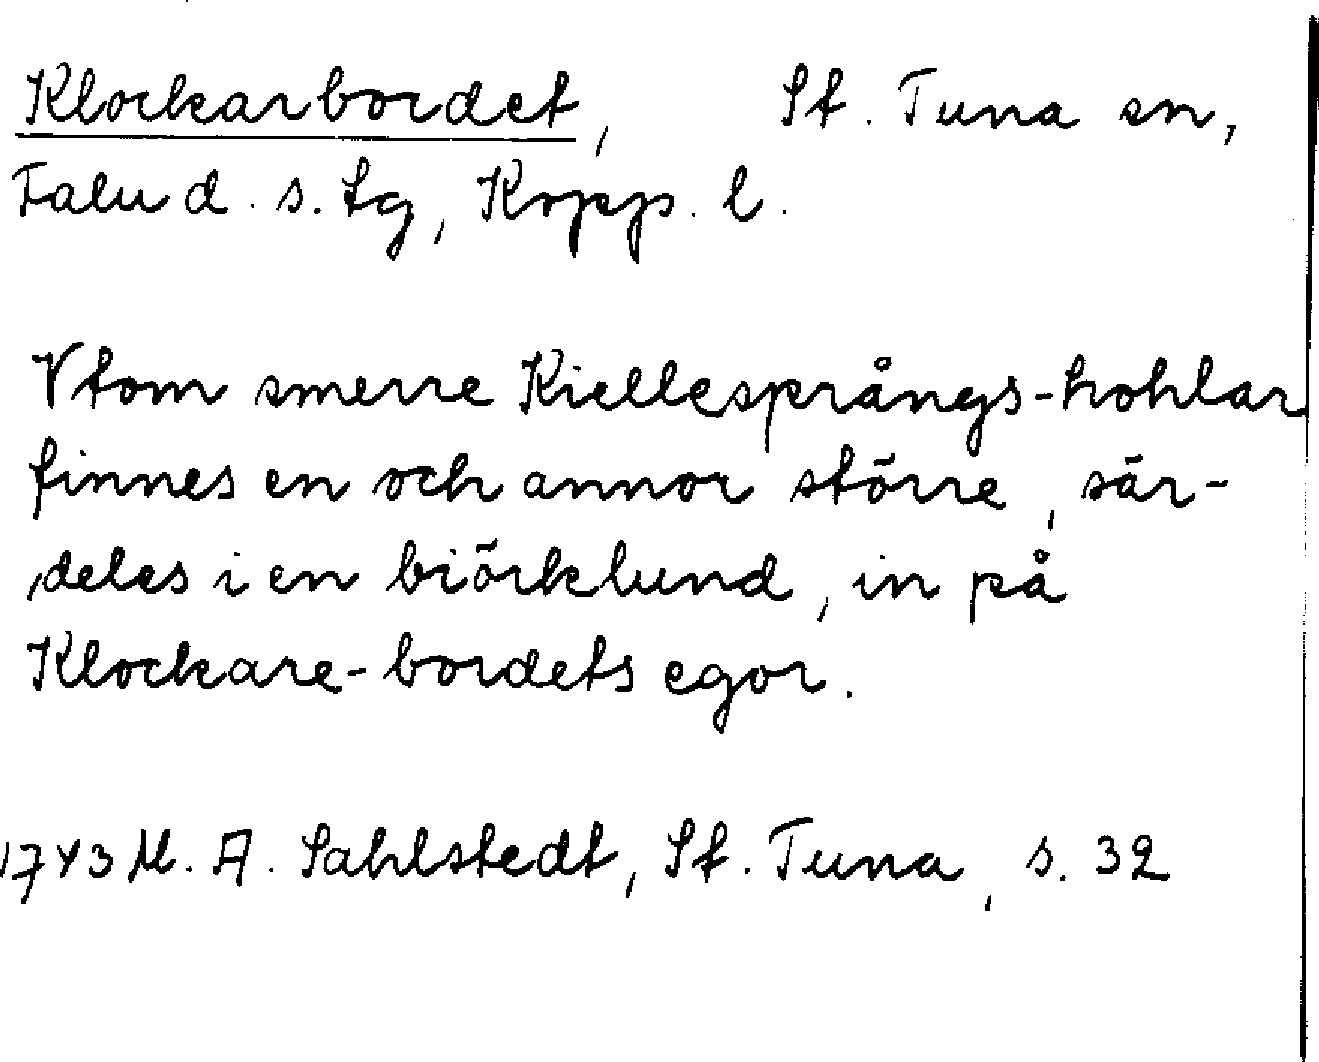 Klockarbordet, St. Tuna sn,
Falu d. s. tg, Kopp. l.
Vtom smerre Kiellesprångs-hohlar
finnes en och annor större, sär-
deles i en biörklund, in på
Klockare-bordets egor.
1743 M. A. Sahlstedt, St. Tuna, s. 32